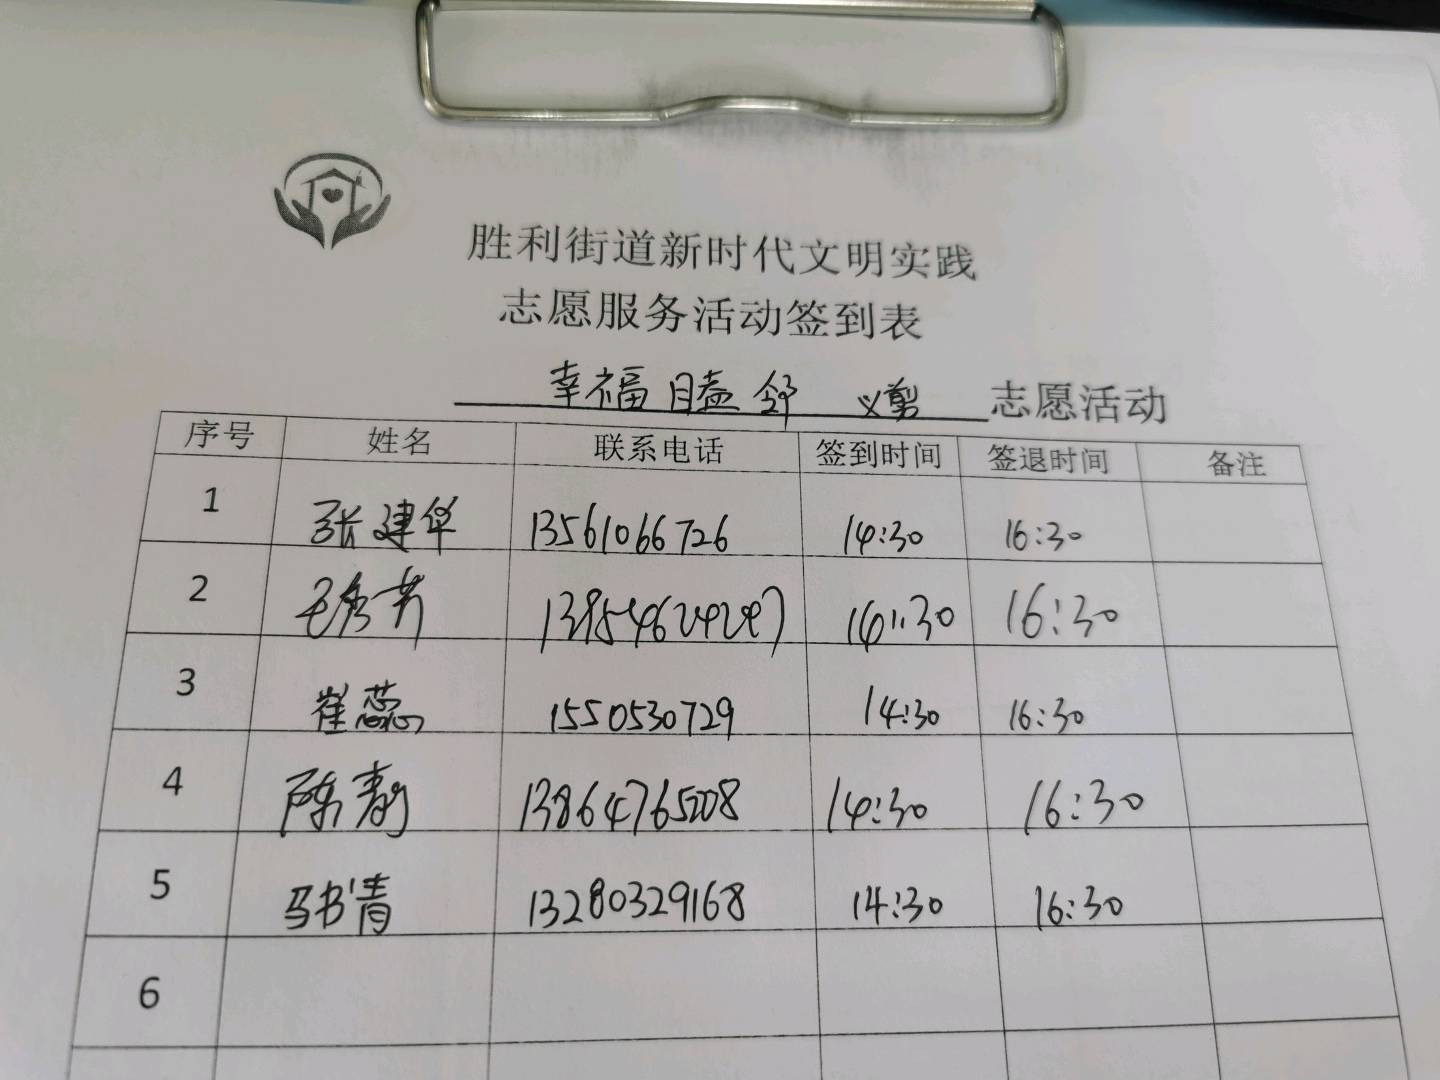 胜利街道新时代文明实践
志愿服务活动签到表
幸福 义剪 志愿活动
序号 姓名 联系电话 签到时间 签退时间 备注
1 张建华 13561066726 14:30 16:30
2 毛秀芳 14:30 16:30
3 崔蕊 1550530729 14:30 16:30
4 陈静 13864765208 14:30 16:30
5 马书青 13280329168 14:30 16:30
6